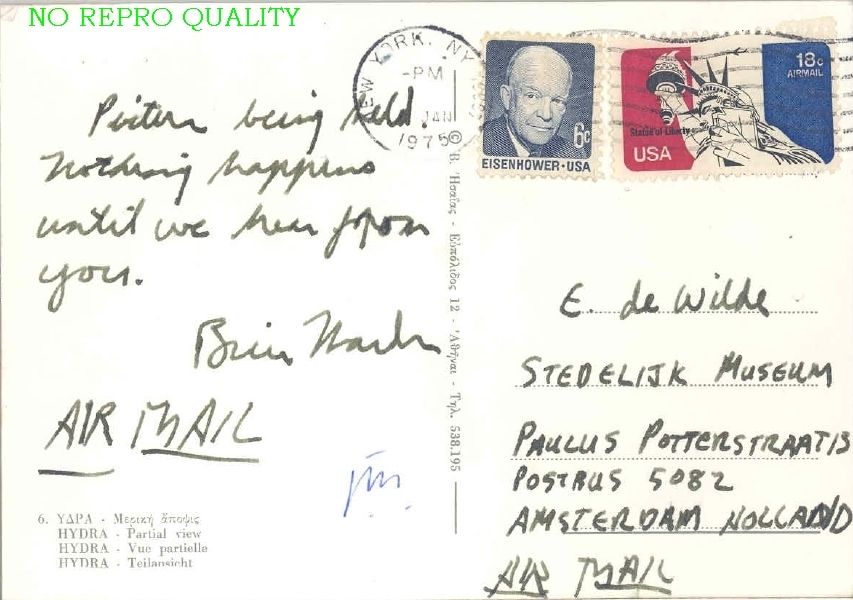 NO REPRO QUALITY
NEW YORK, NY
PM
JAN
1975
EISENHOWER·USA
6c
18c
AIRMAIL
Statue of Liberty
USA
being held.
Nothing happens
until we hear from
you.
Brian
AIR MAIL
© Β. Ἡσαΐας - Εὐπόλιδος 12 - Ἀθῆναι - Τηλ. 538.195
E. de Wilde
STEDELIJK MUSEUM
PAULUS POTTERSTRAAT 13
POSTBUS 5082
AMSTERDAM HOLLAND
AIR MAIL
6. ΥΔΡΑ - Μερικὴ ἄποψις
HYDRA - Partial view
HYDRA - Vue partielle
HYDRA - Teilansicht